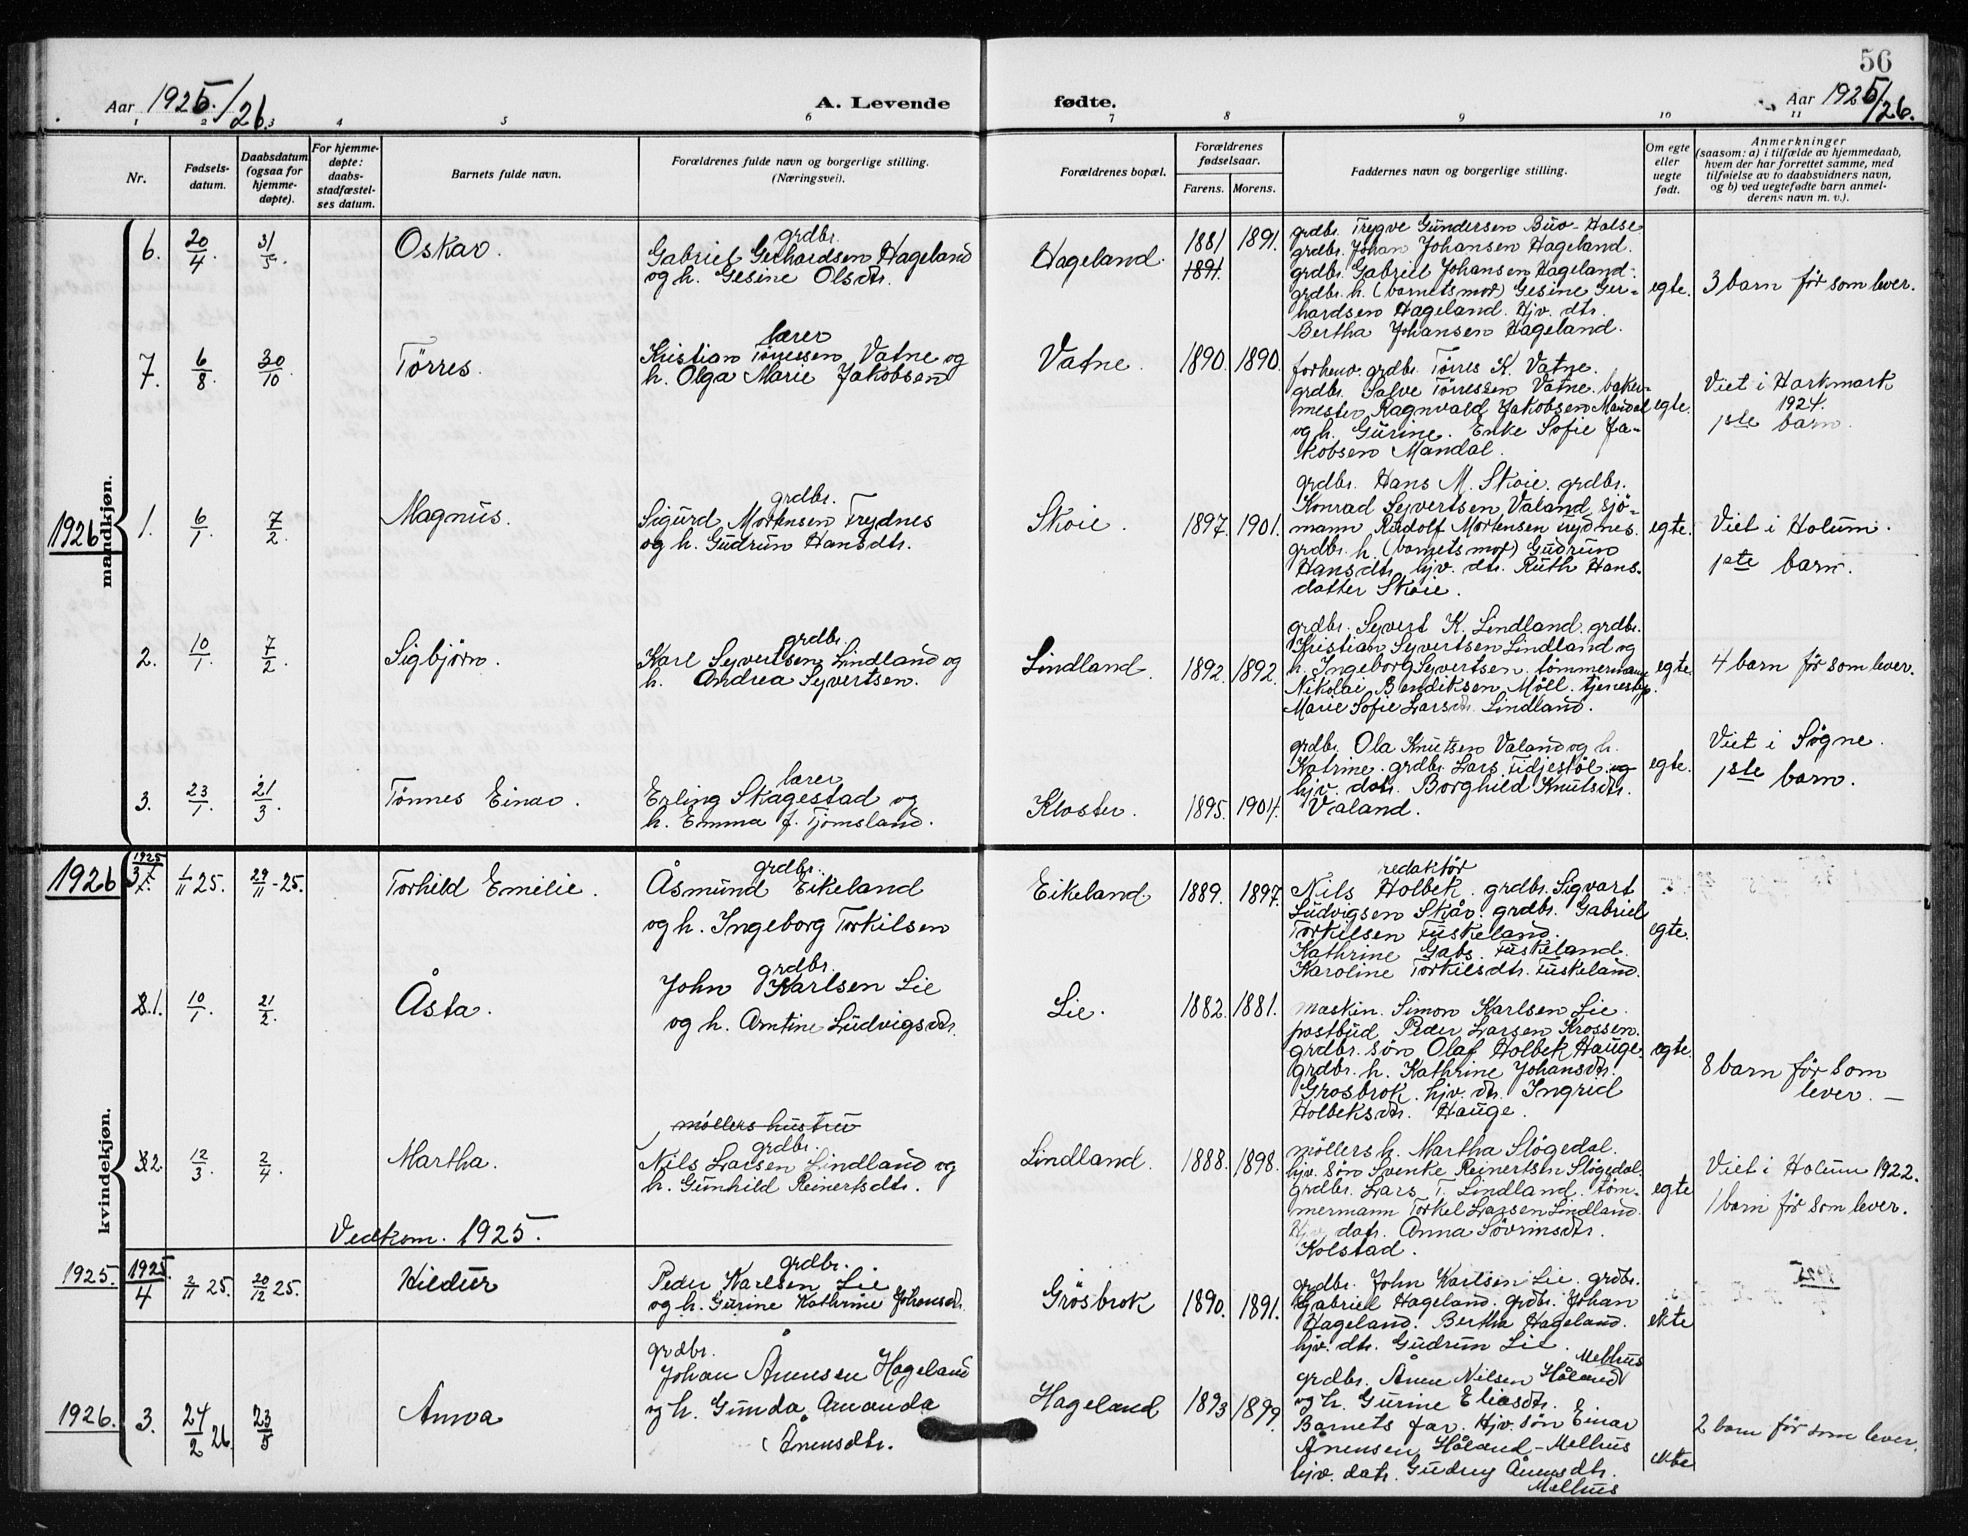 56
Aar 1925/26. A. Levende fødte. Aar 1925/26.
1 2 3 4 5 6 7 8 9 10 11
Nr.
Fødsels-
datum.
Daabsdatum
(ogsaa for
hjemme-
døpte).
For hjemme-
døpte:
daabs-
stadfæstel-
ses datum.
Barnets fulde navn.
Forældrenes fulde navn og borgerlige stilling.
(Næringsvei).
Forældrenes bopæl.
Forældrenes
fødselsaar.
Farens. Morens.
Faddernes navn og borgerlige stilling.
Om egte
eller
uegte
født.
Anmerkninger
(saasom: a) i tilfælde av hjemmedaab,
hvem der har forrettet samme, med
tilføielse av to daabsvidners navn,
og b) ved uegtefødte barn anmel-
derens navn m. v.).
1926
mandkjøn.
6. 20/4 31/5. Oskar.
grdbr.
Gabriel Gerhardsen Hageland
og h. Gesine Olsdtr.
Hageland. 1881 1891.
1891.
grdbr. Trygve Gundersen Buo-Holse
grdbr. Johan Johansen Hageland.
grdbr. Gabriel Johansen Hageland.
grdbr. h. (barnets mor) Gesine Ger-
hardsen Hageland. Hjv. dtr.
Bertha Johansen Hageland.
egte. 3 barn før som lever.
7. 6/8 30/10. Tørres.
lærer
Kristian Tørressen Vatne og
h. Olga Marie Jakobsen
Vatne. 1890. 1890.
forhenv. grdbr. Tørres K. Vatne.
grdbr. Salve Tørressen Vatne. baker-
mester Ragnvald Jakobsen Mandal
og h. Gurine. Enke Sofie Ja-
kobsen Mandal.
egte.
Viet i Harkmark
1924.
1ste barn.
1. 6/1 7/2. Magnus.
grdbr.
Sigurd Mortensen Trydnes
og h. Gudrun Hansdtr.
Skoie. 1897. 1901.
grdbr. Hans M. Skoie. grdbr.
Konrad Syvertsen Valand. sjö-
mann Rudolf Mortensen Trydnes.
grdbr. h. (barnets mor) Gudrun
Hansdtr. hjv. dtr. Ruth Hans-
datter Skoie.
egte.
Viet i Holum.
1ste barn.
2. 10/1 7/2. Sigbjørn.
grdbr.
Karl Syvertsen Lindland og
h. Andrea Syvertsen.
Lindland. 1892. 1892.
grdbr. Syvert K. Lindland. grdbr.
Kristian Syvertsen Lindland og
h. Ingeborg Syvertsen. tømmermann
Nikolai Bendiksen Møll. tjenestep.
Marie Sofie Larsdtr. Lindland.
egte. 4 barn før som lever.
3. 23/1 21/3. Tønnes Einar.
lærer
Erling Skagestad og
h. Emma f. Tjomsland.
Kloster. 1895. 1904.
grdbr. Ola Knutsen Valand og h.
Katrine. grdbr. Lars Fidjestøl og
hjv. datr. Borghild Knutsdtr.
Valand.
egte.
Viet i Søgne.
1ste barn.
1926
kvindekjøn.
1925
3. 1/11 25. 29/11-25. Torhild Emilie.
grdbr.
Åsmund Eikeland
og h. Ingeborg Torkilsen
Eikeland. 1889. 1897.
redaktør
Nils Holbek. grdbr. Sigvart
Ludvigsen Skår. grdbr. Gabriel
Torkilsen Fuskeland.
Kathrine Gabs. Fuskeland.
Karoline Torkilsdtr. Fuskeland.
egte.
1. 10/1 21/2. Åsta.
grdbr.
John Karlsen Lie
og h. Amtine Ludvigsdtr.
Lie. 1882. 1881.
maskin. Simon Karlsen Lie.
postbud Peder Larsen Krossen.
grdbr. søn Olaf Holbek Hauge.
grdbr. h. Kathrine Johansdtr.
Grosbrok. hjv. dtr. Ingrid
Holbeksdtr. Hauge.
egte.
8 barn før som
lever. —
2. 12/3 2/4. Martha.
møllers hustru
grdbr.
Nils Larsen Lindland og
h. Gunhild Reinertsdtr.
Lindland. 1888. 1898.
møllers h. Martha Sløgedal.
hjv. søn Svenke Reinertsen Sløgedal.
grdbr. Lars T. Lindland. tøm-
mermann Torkel Larsen Lindland.
Hjv. datr. Anna Sövrinsdtr.
Kolstad.
egte
Viet i Holum 1922.
1 barn før som lever.
Vedkom. 1925.
1925. 1925.
4 2/11 25. 20/12 25. Hildur
grdbr.
Peder Karlsen Lie
og h. Gurine Kathrine Johansdtr.
Grösbrok 1890. 1891.
grdbr. John Karlsen Lie. grdbr.
Gabriel Hageland. grdbr. Johan
Hageland. Bertha Hageland.
hjv. dtr. Gudrun Lie.
ekte
1926. 3. 24/2 26. 23/5 Anna
grdbr.
Johan Ånensen Hageland
og h. Gunda Amanda
Ånensdtr.
Hageland 1893 1899.
Melhus
grdbr. Ånen Nilsen Håland
og h. Gurine Eliasdtr.
Barnets far. Hjv. søn Einar
Ånensen Håland-Melhus
hjv. datr. Gudny Ånensdtr.
Melhus
ekte
2 barn før som lever.